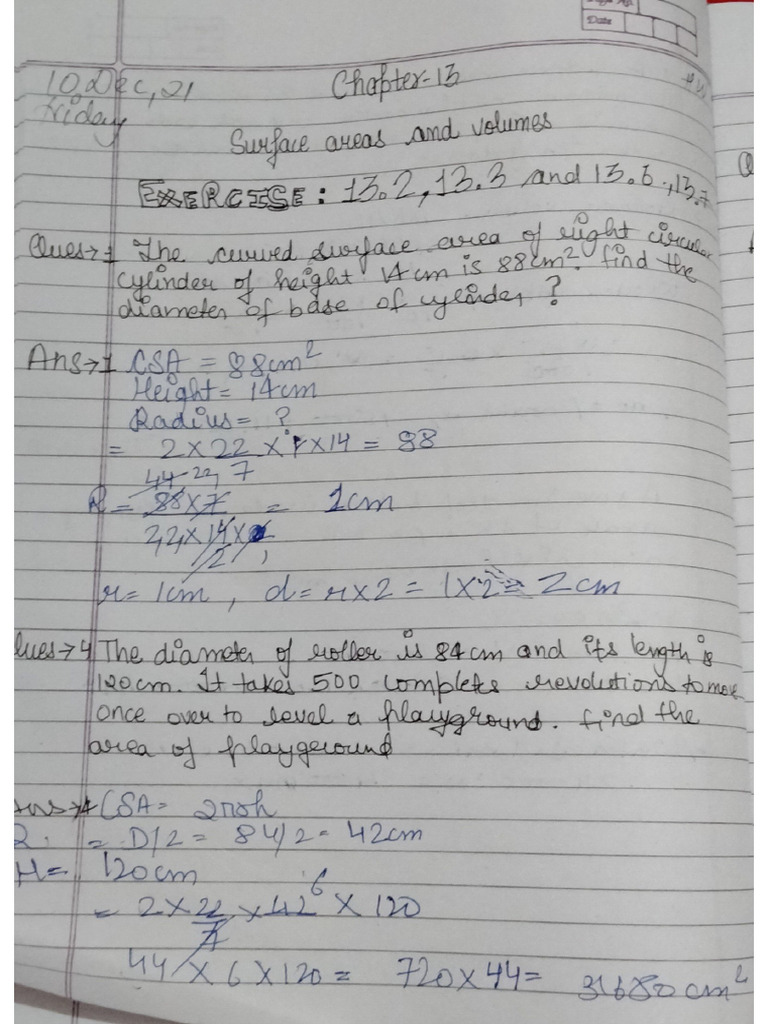 Date
10, Dec, 21
Chapter-13
Friday
Surface areas and volumes
EXERCISE: 13.2, 13.3 and 13.6, 13.7
Ques→1 The curved surface area of right circular
cylinder of height 14 cm is 88cm². find the
diameter of base of cylinder ?
Ans→1 CSA = 88cm²
Height = 14cm
Radius = ?
= 2 X 22 X r X 14 = 88
44 22 7
R = 88 X 7 = 1cm
22 X 14 X 2
2 1
r = 1cm , d = r x 2 = 1 X 2 = 2 cm
Ques→4 The diameter of roller is 84cm and its length is
120cm. It takes 500 complete revolutions to move
once over to level a playground. find the
area of playgeround
Ans→4 CSA = 2πrh
R. = D/2 = 84/2 = 42cm
H = 120cm
= 2 X 22 X 42 6 X 120
7
44 X 6 X 120 = 720 X 44 = 31680 cm²